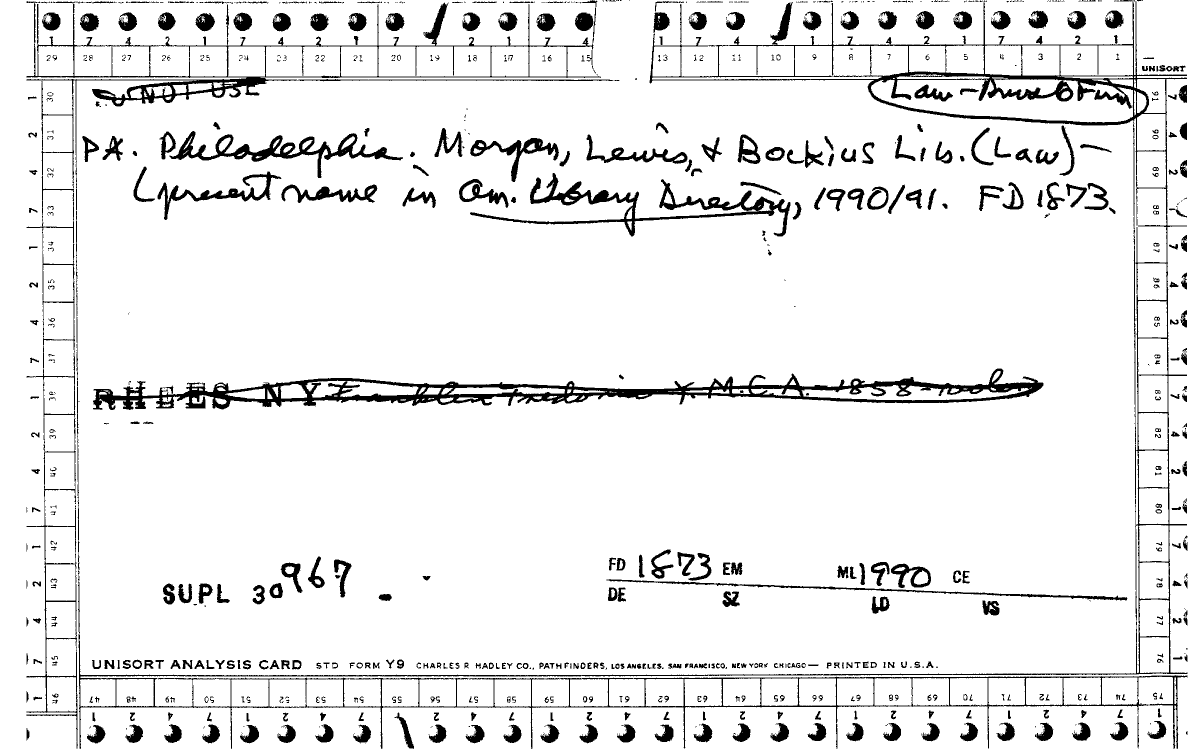 1 7 4 2 1 7 4 2 1 7 4 2 1 7 4 1 7 4 2 1 7 4 2 1 7 4 2 1
29 28 27 26 25 24 23 22 21 20 19 18 17 16 15 13 12 11 10 9 8 7 6 5 4 3 2 1
UNISORT
DO NOT USE
Law - Private Firm
PA. Philadelphia. Morgan, Lewis, & Bockius Lib. (Law) -
(present name in Am. Library Directory, 1990/91. FD 1873.
RHEES NY Franklin Fredonia Y.M.C.A. - 1858 -
SUPL 30967
FD 1873 EM ML 1990 CE
DE SZ LD VS
UNISORT ANALYSIS CARD STD FORM Y9 CHARLES R HADLEY CO., PATHFINDERS, LOS ANGELES, SAN FRANCISCO, NEW YORK CHICAGO — PRINTED IN U.S.A.
47 48 49 50 51 52 53 54 55 56 57 58 59 60 61 62 63 64 65 66 67 68 69 70 71 72 73 74 75
1 2 4 7 1 2 4 7 1 2 4 7 1 2 4 7 1 2 4 7 1 2 4 7 1 2 4 7 1